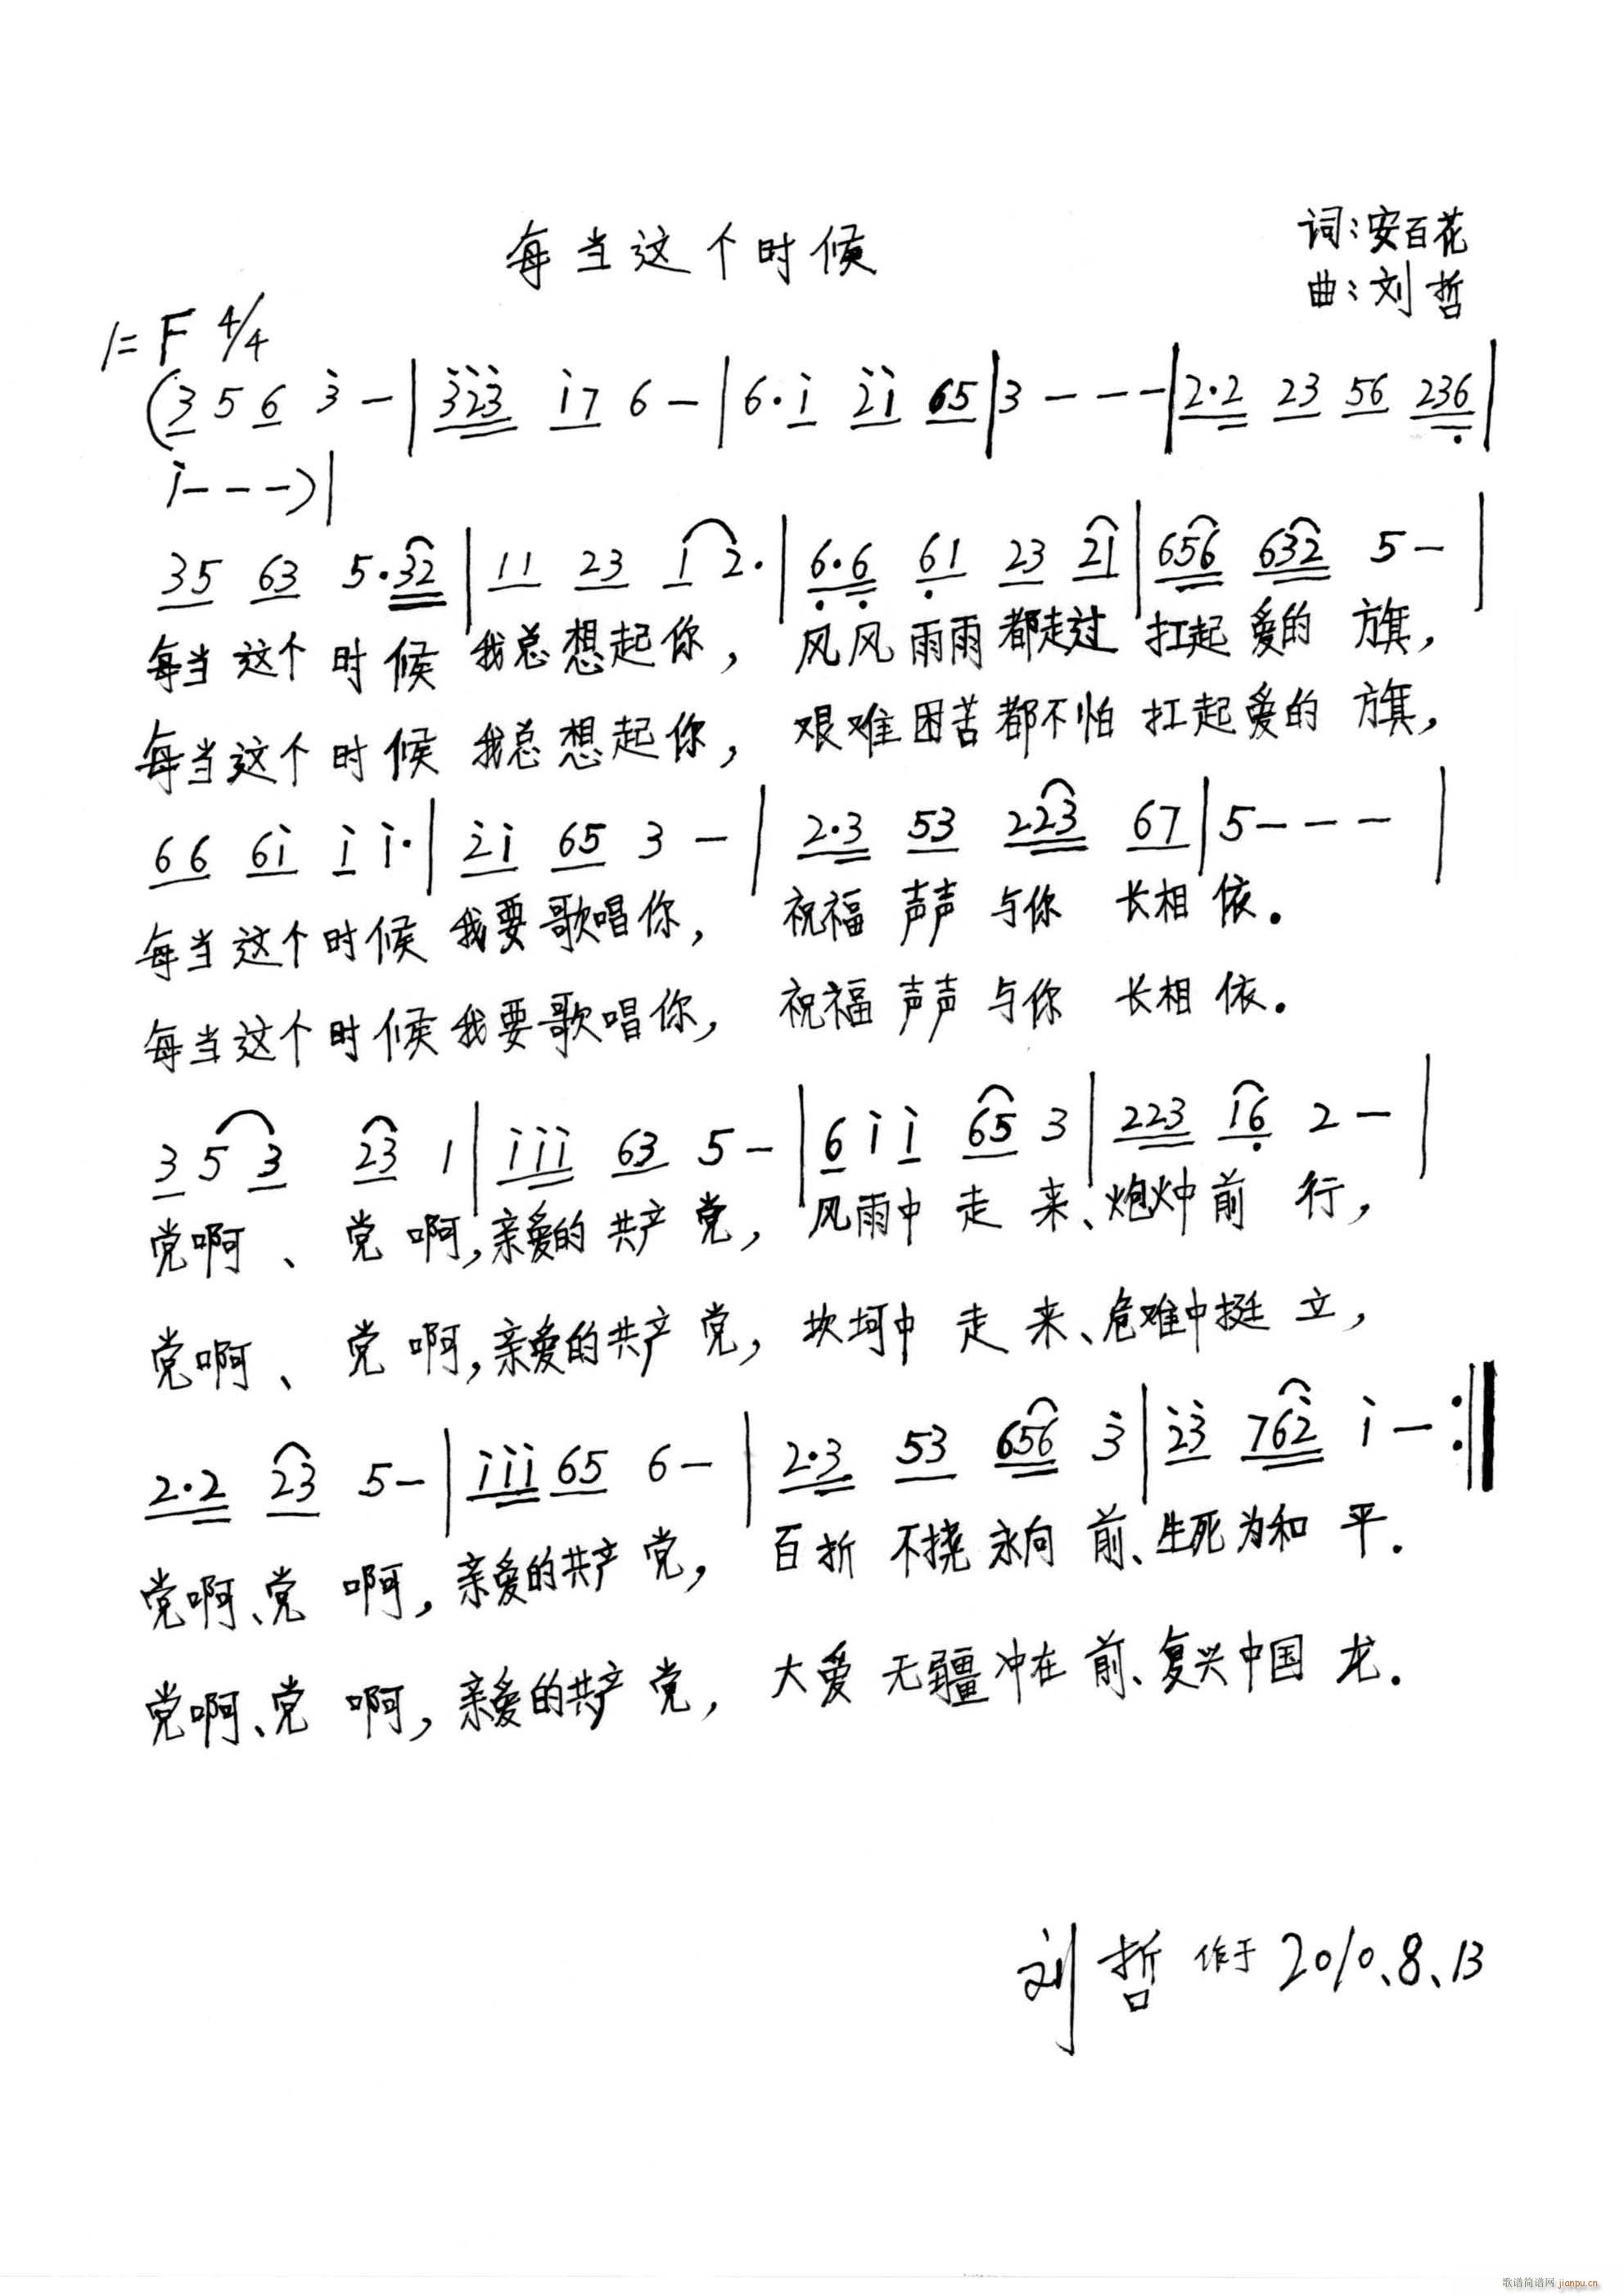 每当这个时候
词:安百花
曲:刘哲
1=F 4/4
(3 5 6 3̇ - | 3̇2̇3̇ i7 6 - | 6·i 2̇i 65 | 3 - - - | 2·2 23 56 236̣ |
i - - -) |
35 63 5·32 | 11 23 1 2· | 6̣·6̣ 6̣1 23 21 | 656 632 5 - |
每当这个时候我总想起你,风风雨雨都走过扛起爱的旗,
每当这个时候我总想起你,艰难困苦都不怕扛起爱的旗,
66 6i i i· | 2̇i 65 3 - | 2·3 53 223 67 | 5 - - - |
每当这个时候我要歌唱你,祝福声声与你长相依。
每当这个时候我要歌唱你,祝福声声与你长相依。
3 5 3 23 1 | iii 63 5 - | 6 i i 65 3 | 223 16̣ 2 - |
党啊、党啊,亲爱的共产党,风雨中走来、炮火中前行,
党啊、党啊,亲爱的共产党,坎坷中走来、危难中挺立,
2·2 23 5 - | iii 65 6 - | 2·3 53 656 3̇ | 2̇3̇ 762̇ i - :‖
党啊、党啊,亲爱的共产党,百折不挠永向前、生死为和平.
党啊、党啊,亲爱的共产党,大爱无疆冲在前、复兴中国龙.
刘哲 作于 2010、8、13
歌谱简谱网 jianpu.cn